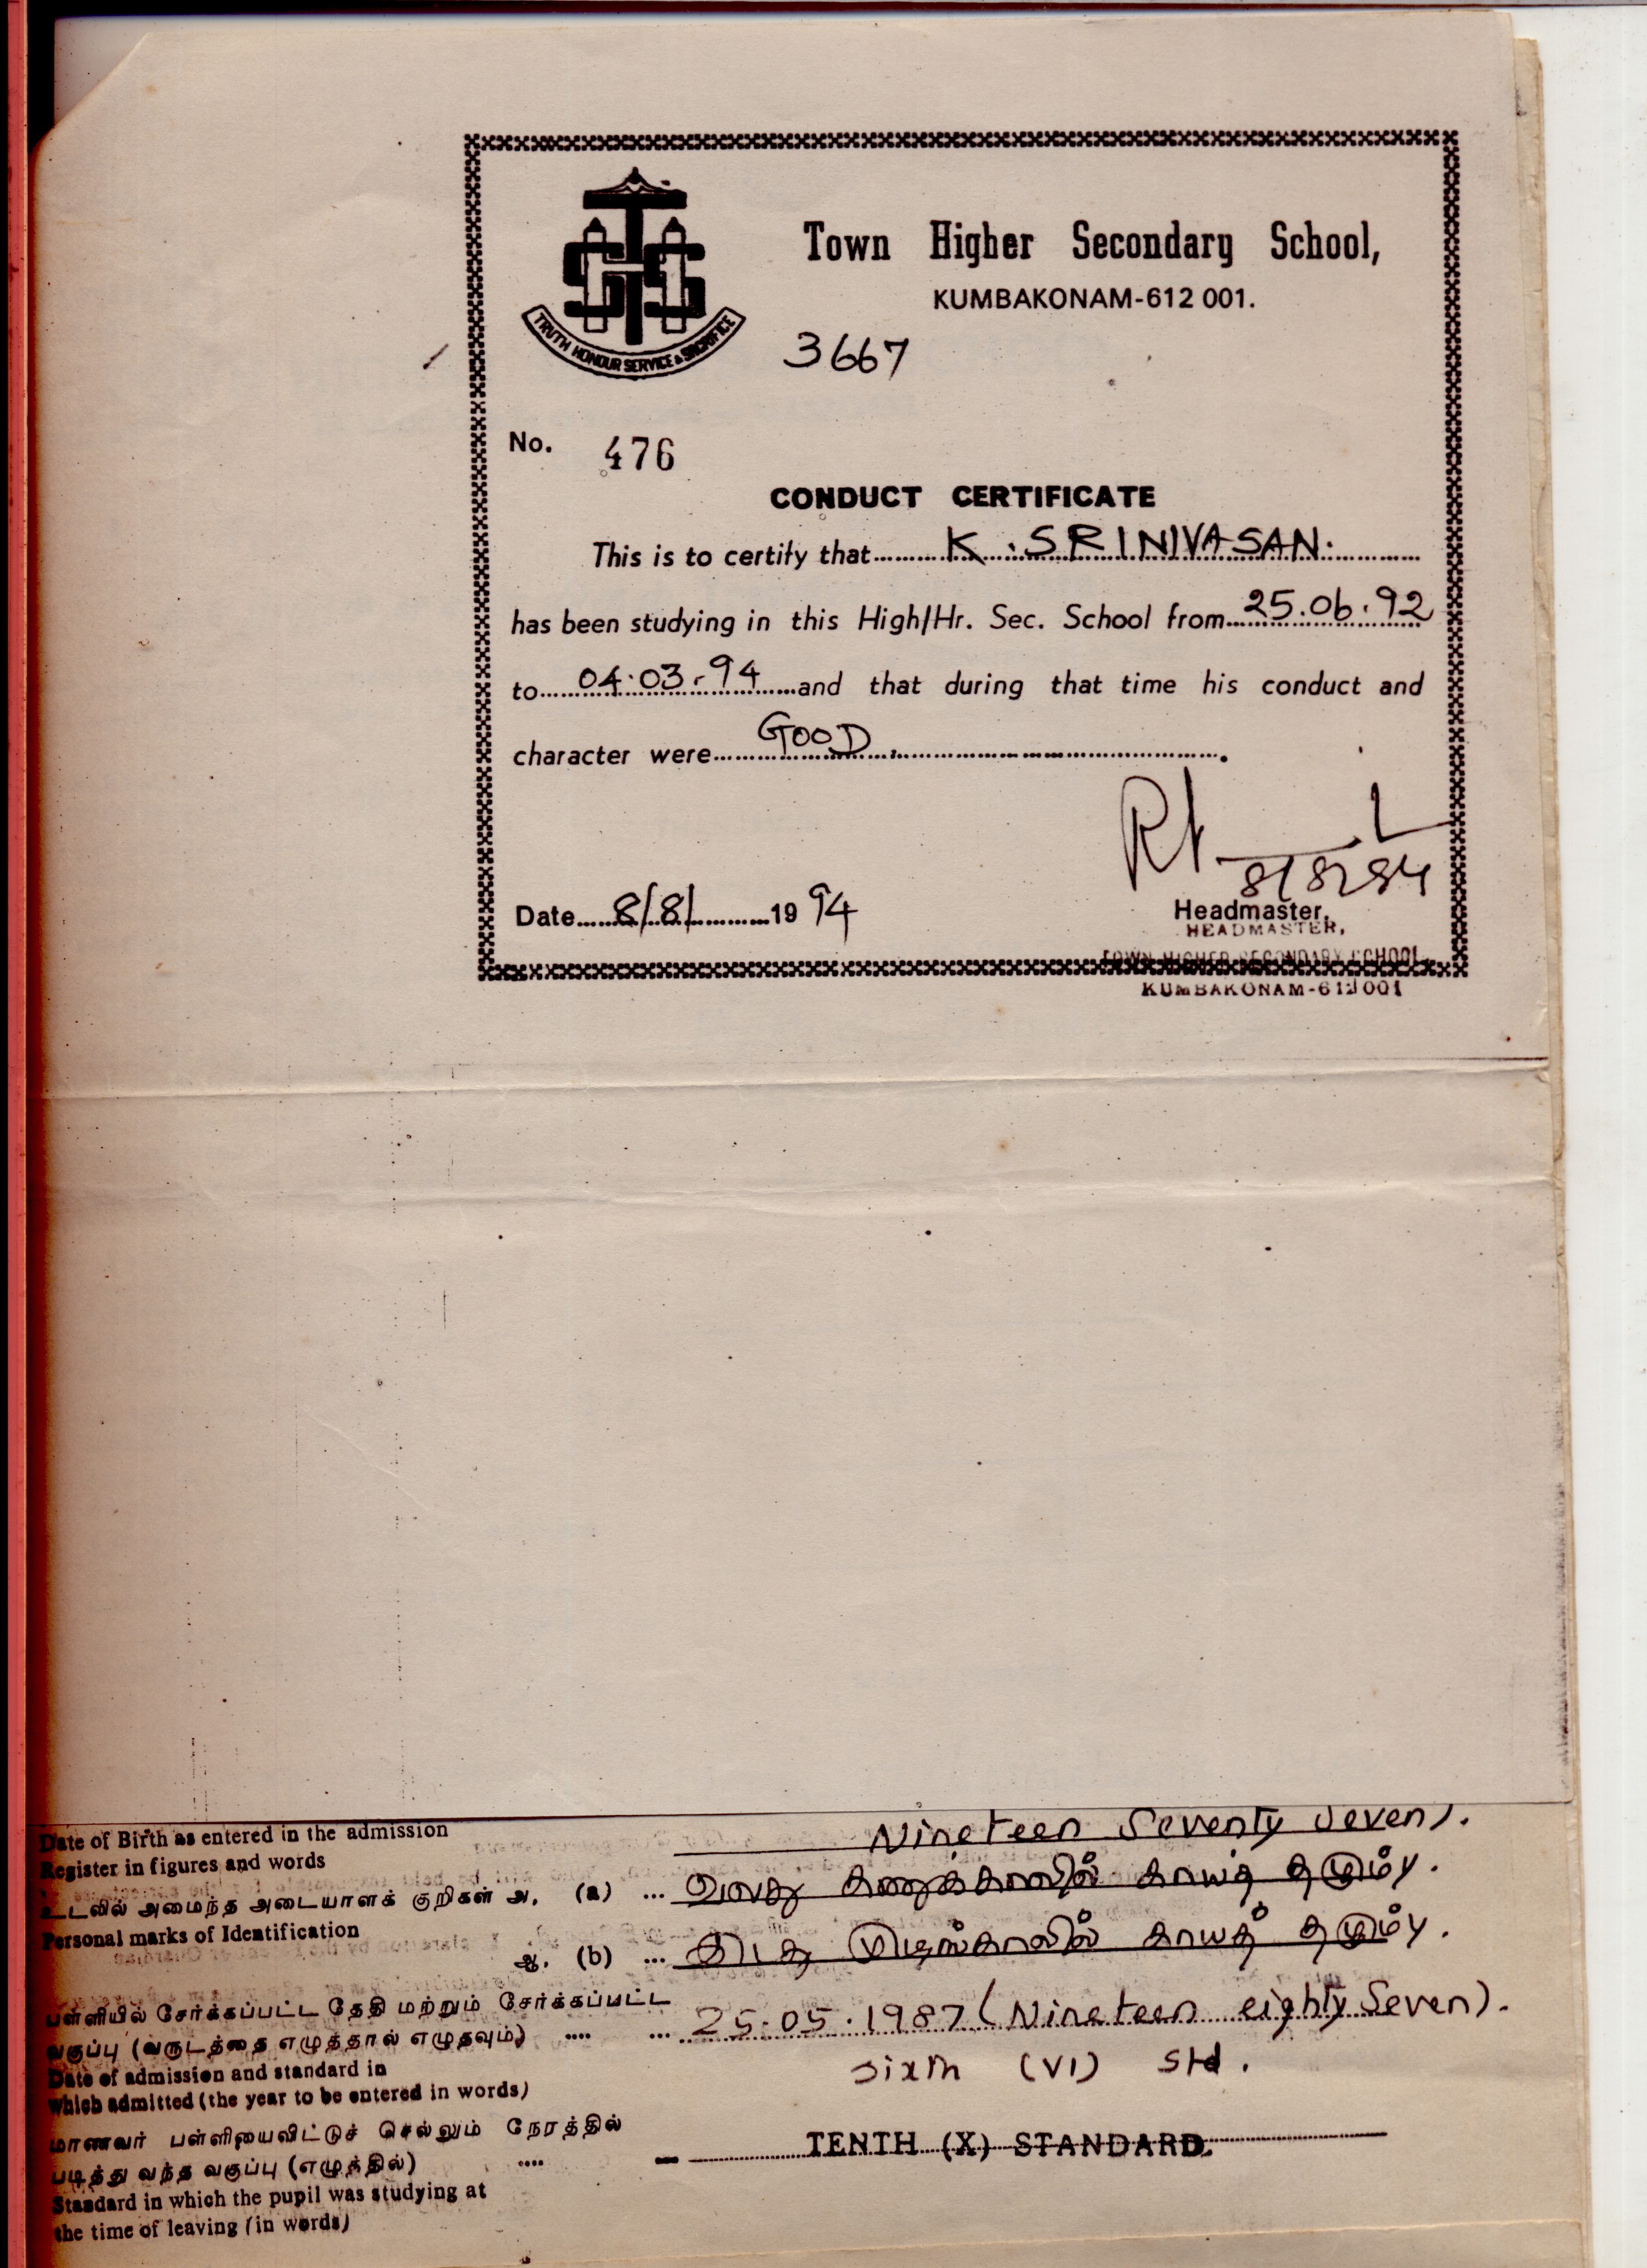 TRUTH HONOUR SERVICE & SACRIFICE
Town Higher Secondary School,
KUMBAKONAM-612 001.
3667
No. 476
CONDUCT CERTIFICATE
This is to certify that K. SRINIVASAN.
has been studying in this High/Hr. Sec. School from 25.06.92
to 04.03.94 and that during that time his conduct and
character were GOOD.
8/8/94
Date 8/8/ 1994
Headmaster,
HEADMASTER,
TOWN HIGHER SECONDARY SCHOOL,
KUMBAKONAM-612 001
Date of Birth as entered in the admission
Nineteen Seventy Seven).
Register in figures and words
உடலில் அமைந்த அடையாளக் குறிகள் அ. (a) ... வலது கணுக்காலில் காயத் தழும்பு.
Personal marks of Identification
ஆ. (b) ... இடது முழங்காலில் காயத் தழும்பு.
பள்ளியில் சேர்க்கப்பட்ட தேதி மற்றும் சேர்க்கப்பட்ட
வகுப்பு (வருடத்தை எழுத்தால் எழுதவும்) .... ... 25.05.1987 (Nineteen eighty Seven).
Date of admission and standard in
Sixth (VI) Std.
which admitted (the year to be entered in words)
மாணவர் பள்ளியைவிட்டுச் செல்லும் நேரத்தில்
படித்து வந்த வகுப்பு (எழுத்தில்) .... TENTH (X) STANDARD.
Standard in which the pupil was studying at
the time of leaving (in words)